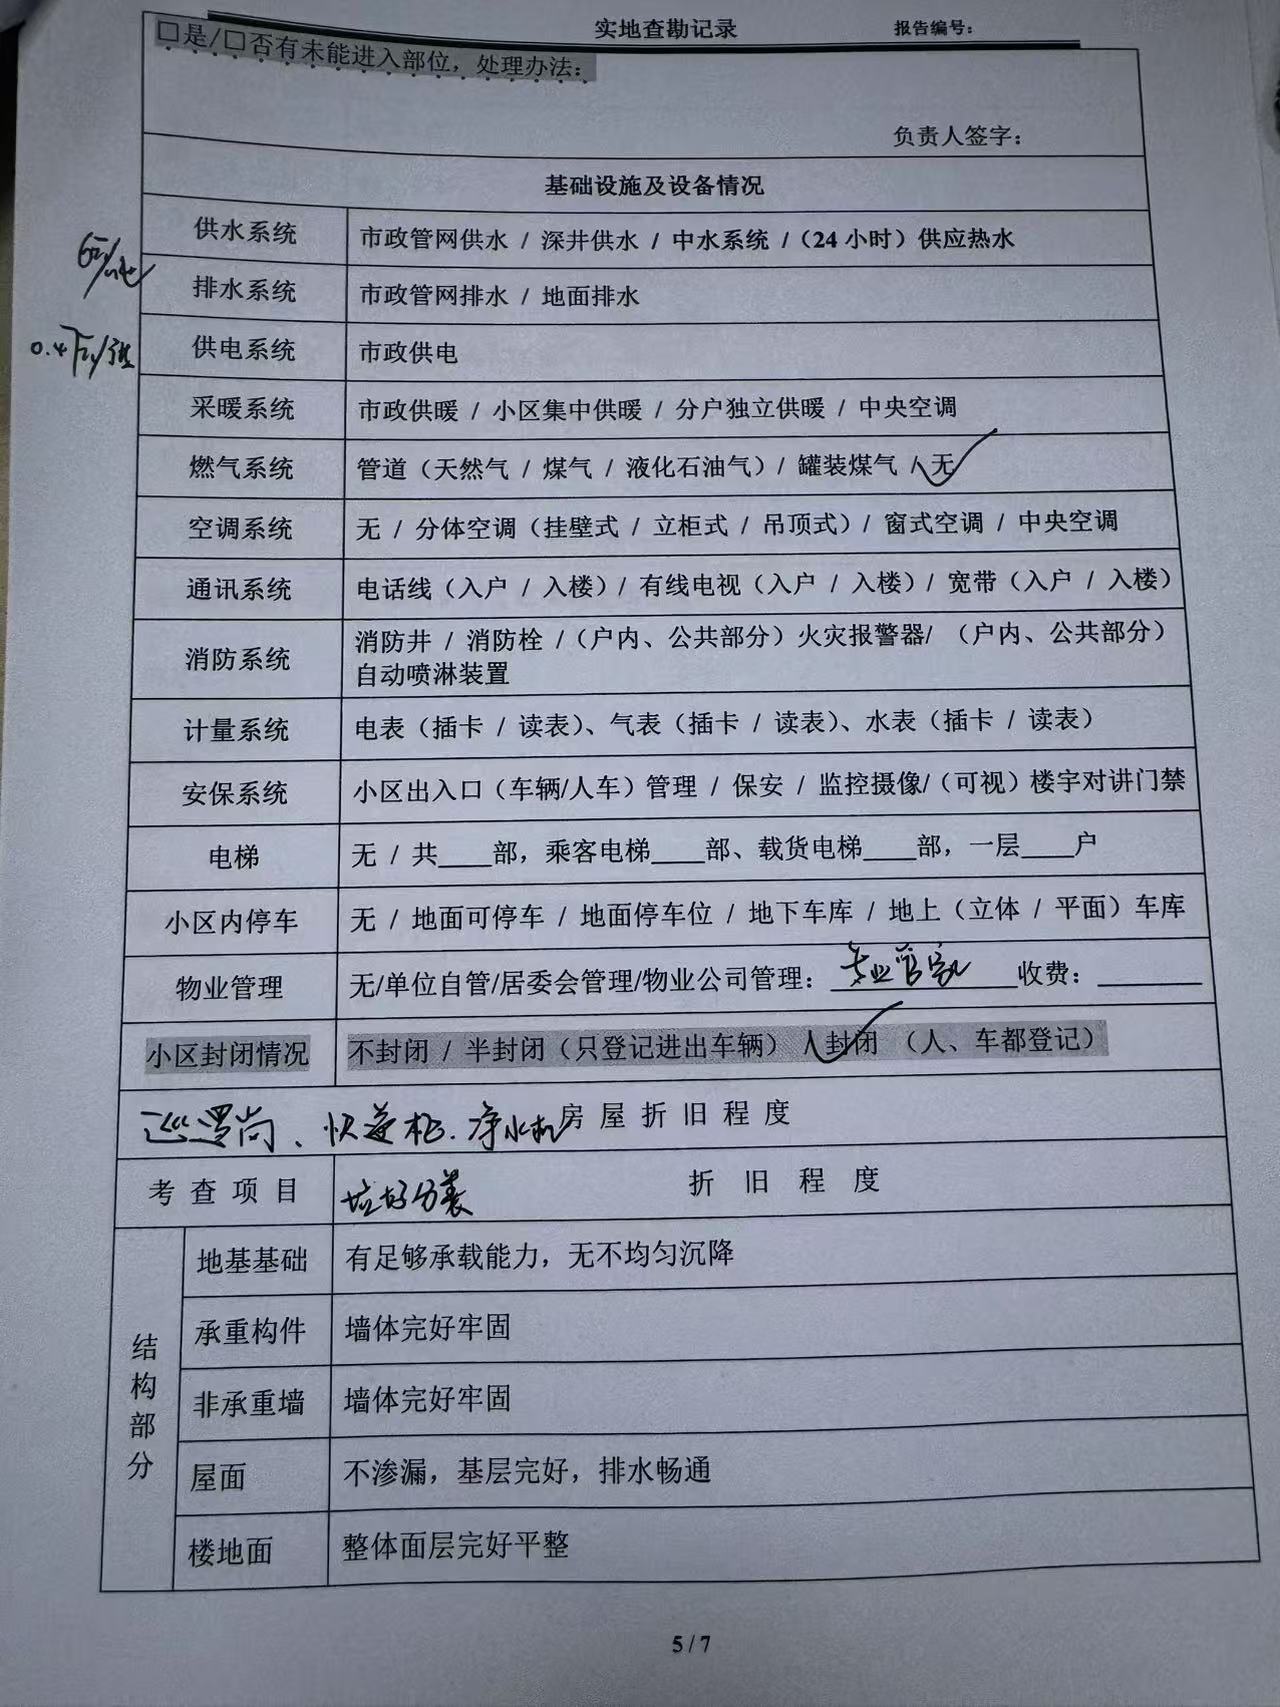 实地查勘记录 报告编号：
□是/□否有未能进入部位，处理办法：
负责人签字：
基础设施及设备情况
供水系统 市政管网供水 / 深井供水 / 中水系统 /（24 小时）供应热水
6元/吨
排水系统 市政管网排水 / 地面排水
供电系统 市政供电
采暖系统 市政供暖 / 小区集中供暖 / 分户独立供暖 / 中央空调
燃气系统 管道（天然气 / 煤气 / 液化石油气）/ 罐装煤气 / 无
空调系统 无 / 分体空调（挂壁式 / 立柜式 / 吊顶式）/ 窗式空调 / 中央空调
通讯系统 电话线（入户 / 入楼）/ 有线电视（入户 / 入楼）/ 宽带（入户 / 入楼）
消防系统 消防井 / 消防栓 /（户内、公共部分）火灾报警器/ （户内、公共部分）
自动喷淋装置
计量系统 电表（插卡 / 读表）、气表（插卡 / 读表）、水表（插卡 / 读表）
安保系统 小区出入口（车辆/人车）管理 / 保安 / 监控摄像/（可视）楼宇对讲门禁
电梯 无 / 共____部，乘客电梯____部、载货电梯____部，一层____户
小区内停车 无 / 地面可停车 / 地面停车位 / 地下车库 / 地上（立体 / 平面）车库
物业管理 无/单位自管/居委会管理/物业公司管理： 专业管家 收费：________
小区封闭情况 不封闭 / 半封闭（只登记进出车辆） / 封闭 （人、车都登记）
巡逻岗、快递柜.净水机 房屋折旧程度
考查项目 垃圾分类 折旧程度
结构部分
地基基础 有足够承载能力，无不均匀沉降
承重构件 墙体完好牢固
非承重墙 墙体完好牢固
屋面 不渗漏，基层完好，排水畅通
楼地面 整体面层完好平整
5 / 7